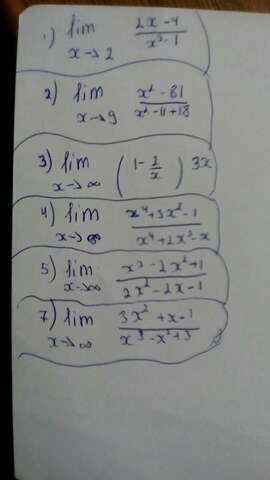 1) lim x→2 (2x-4)/(x³-1)
2) lim x→9 (x²-81)/(x²-11+18)
3) lim x→∞ (1-2/x) 3x
4) lim x→∞ (x⁴+3x²-1)/(x⁴+2x³-x)
5) lim x→∞ (x³-2x²+1)/(2x²-2x-1)
7) lim x→∞ (3x²+x-1)/(x³-x²+3)